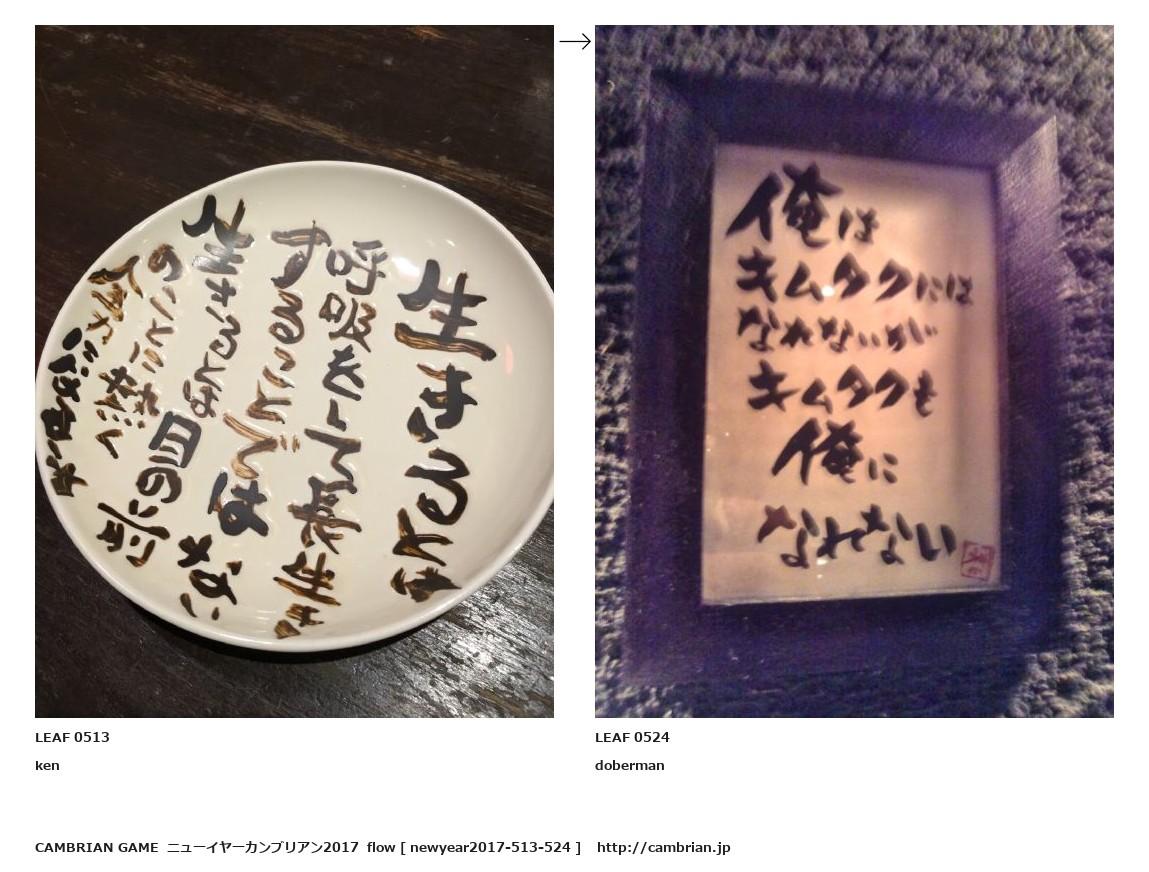 生きるとは
呼吸をして長生き
することではない
生きるとは目の前
のことに熱く
俺は
キムタクには
なれないが
キムタクも
俺に
なれない
→
LEAF 0513
ken
LEAF 0524
doberman
CAMBRIAN GAME ニューイヤーカンブリアン2017 flow [ newyear2017-513-524 ] http://cambrian.jp